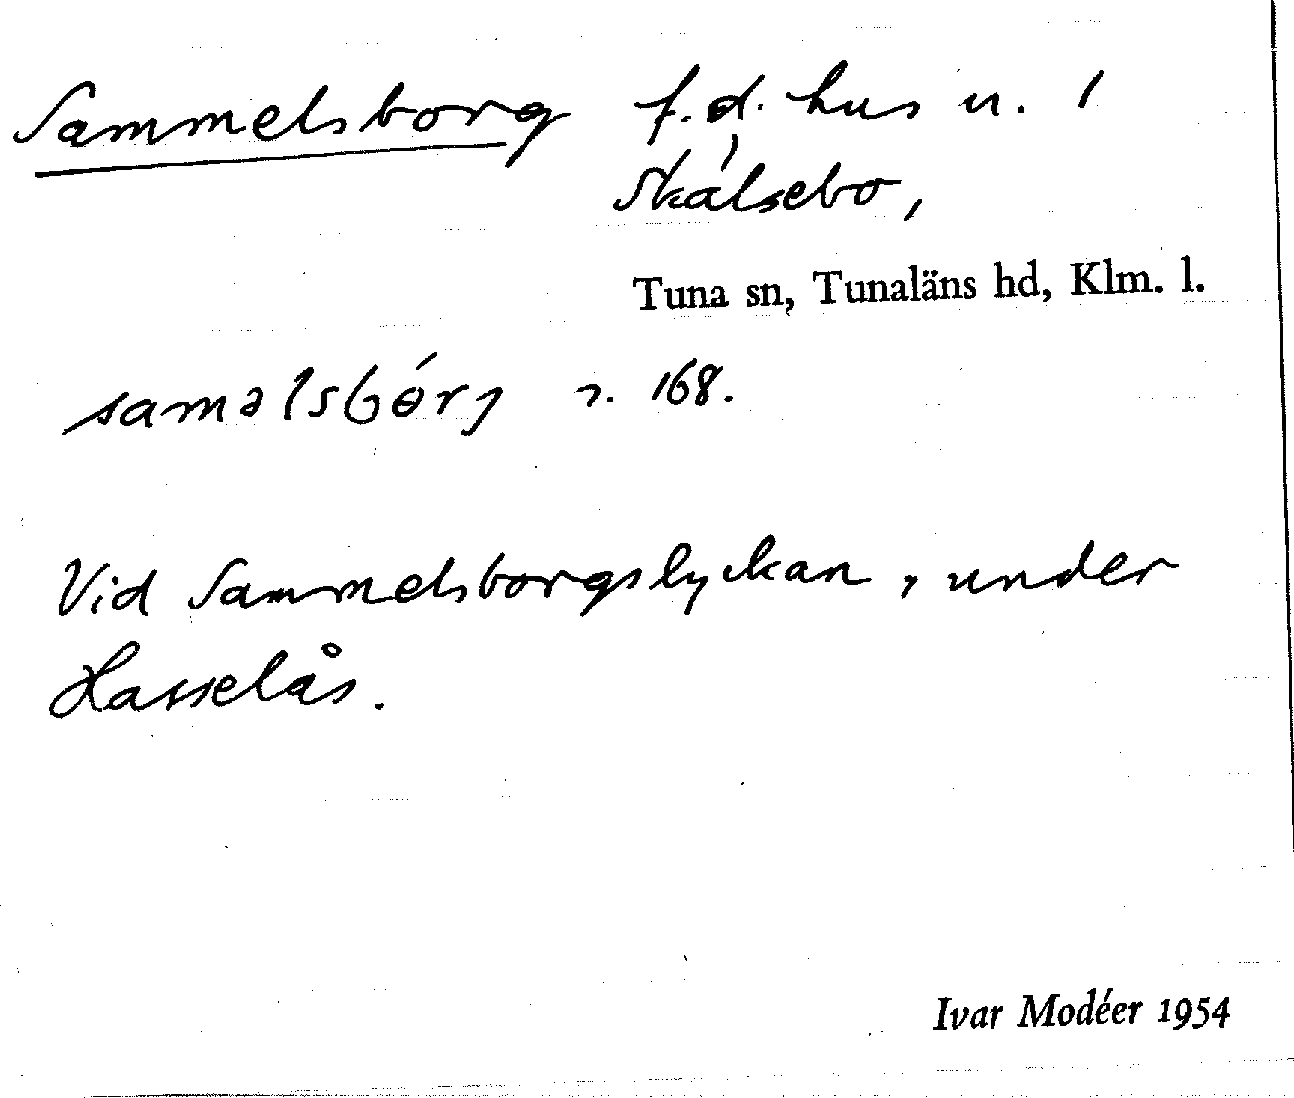 Sammelsborg f.d. hus u. 1
Skálsebo,
Tuna sn, Tunaläns hd, Klm. l.
saməlsbórj 168.
Vid Sammelsborgslyckan, under
Hasselås.
Ivar Modéer 1954